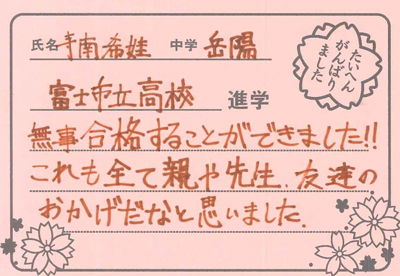 氏名 寺南希娃 中学 岳陽
たいへん
がんばり
ました
富士市立高校 進学
無事合格することができました!!
これも全て親や先生、友達の
おかげだなと思いました.